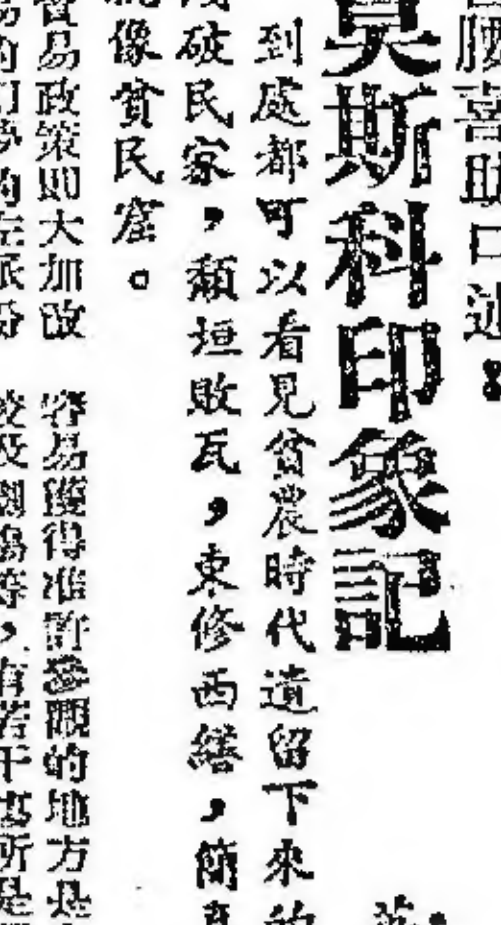 勝喜助口述：
莫斯科印象記
到處都可以看見貧農時代遺留下來的
殘破民家，頹垣敗瓦，東修西繕，簡直
就像貧民窟。
貿易政策則大加改
容易獲得准許參觀的地方是
的左派份
及劇場等，有若干處所是